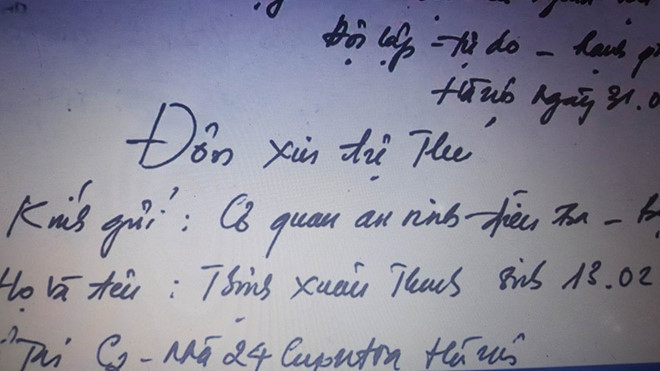 Độc lập - tự do - hạnh
Hà nội ngày 31.0
Đơn xin tự Thú
Kính gửi : Cơ quan an ninh điều tra - B
Họ và tên : Trịnh Xuân Thanh sinh 13.02
Tại C2 - Nhà 24 Hà nội